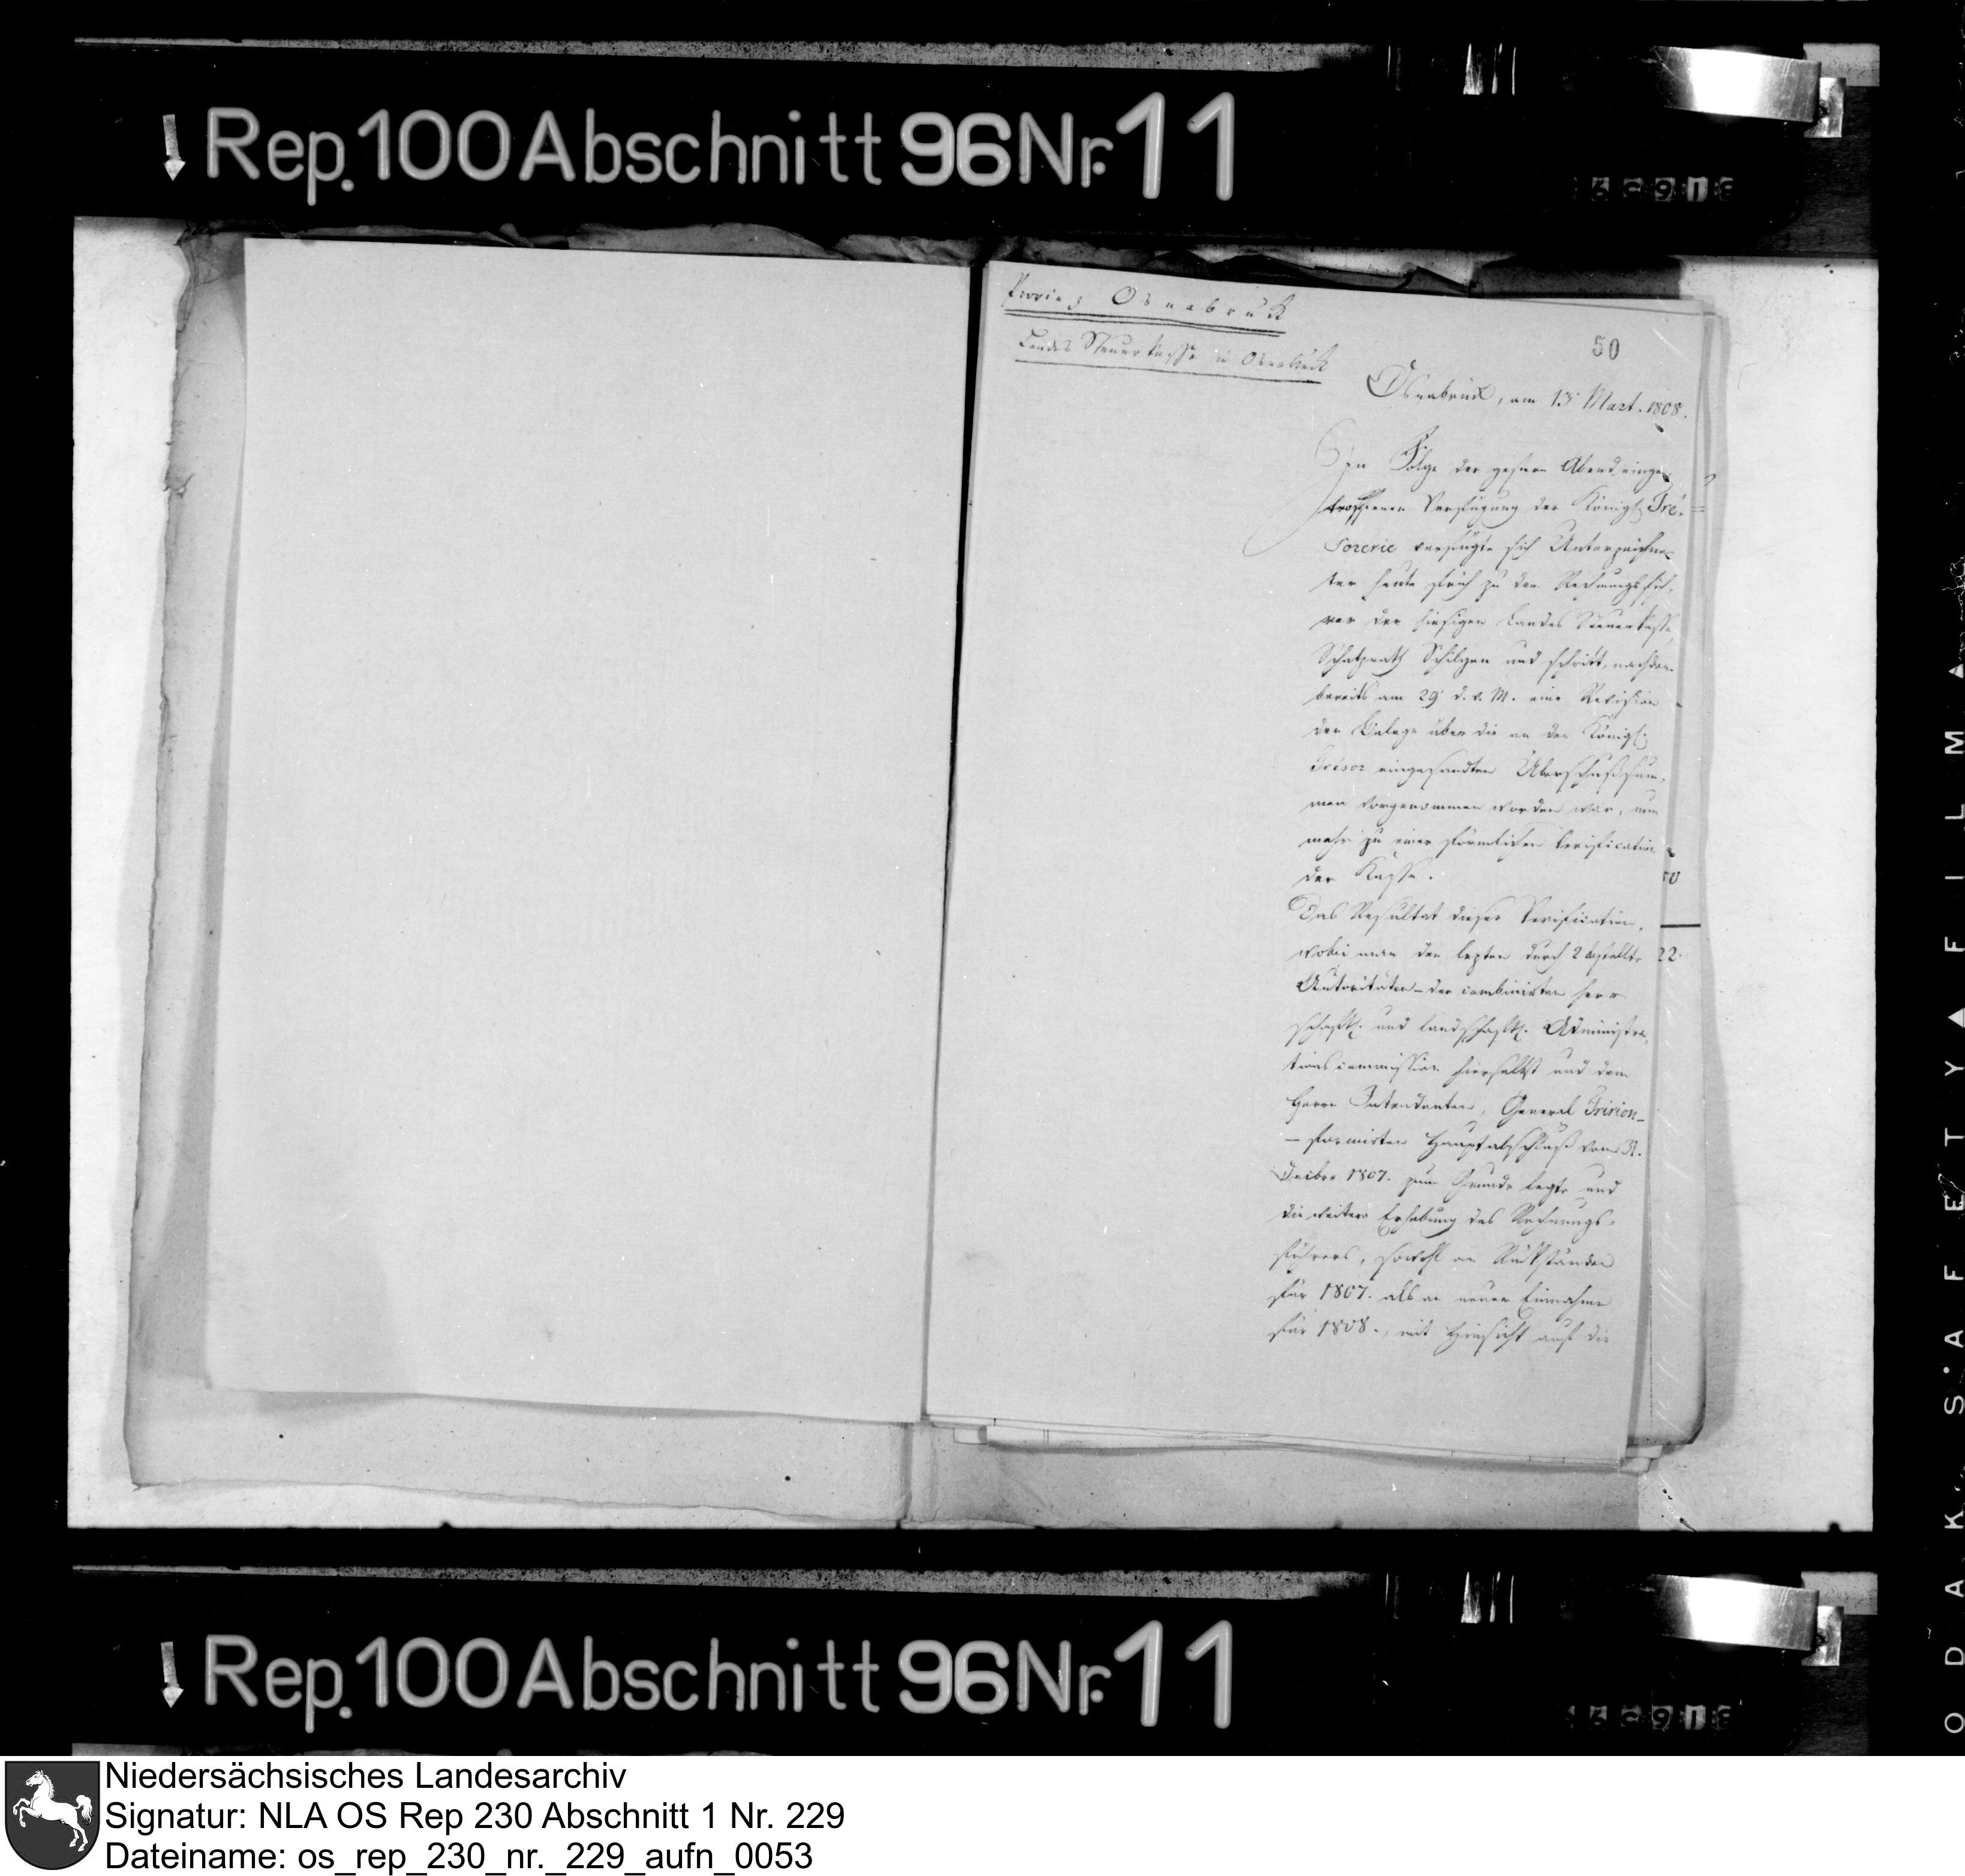 Rep. 100 Abschnitt 96 Nr. 11
Provinz Osnabrück
Landes Steuerkasse in Osnabrück
50
Osnabrück, am 13. Mart. 1808.
In Folge der gestern Abend einge-
troffenen Verfügung der Königl. Tré-
sorerie verfügte sich Unterzeichne-
ter heute früh zu dem Rechnungsfüh-
rer der hiesigen Landes Steuerkasse,
Schatzrath Schilgen und schritt, nachdem
bereits am 29. d. v. M. eine Revision
der Belege über die an den Königl.
Trésor eingesandten Überschußsum-
men vorgenommen worden war, nun
mehr zu einer förmlichen Verification
der Kasse.
Das Resultat dieser Verification,
wobei man den letzten durch 2 bestellte
Autoritäten - der combinirten herr
schaftl. und landschaftl. Administra-
tions commission hieselbst und dem
Herrn Intendanten, General
- formirten Hauptabschluß vom 31.
Decbr 1807. zum Grunde legte und
die weitere Erhebung des Rechnungs-
führers, sowohl an Rückständen
für 1807. als an neuer Einnahme
für 1808., mit Hinsicht auf die
22.
Rep. 100 Abschnitt 96 Nr. 11
KODAK SAFETY FILM
Niedersächsisches Landesarchiv
Signatur: NLA OS Rep 230 Abschnitt 1 Nr. 229
Dateiname: os_rep_230_nr._229_aufn_0053